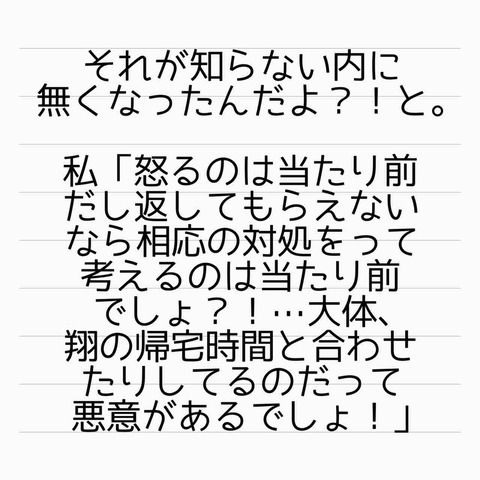 それが知らない内に
無くなったんだよ？！と。
私「怒るのは当たり前
だし返してもらえない
なら相応の対処をって
考えるのは当たり前
でしょ？！…大体、
翔の帰宅時間と合わせ
たりしてるのだって
悪意があるでしょ！」